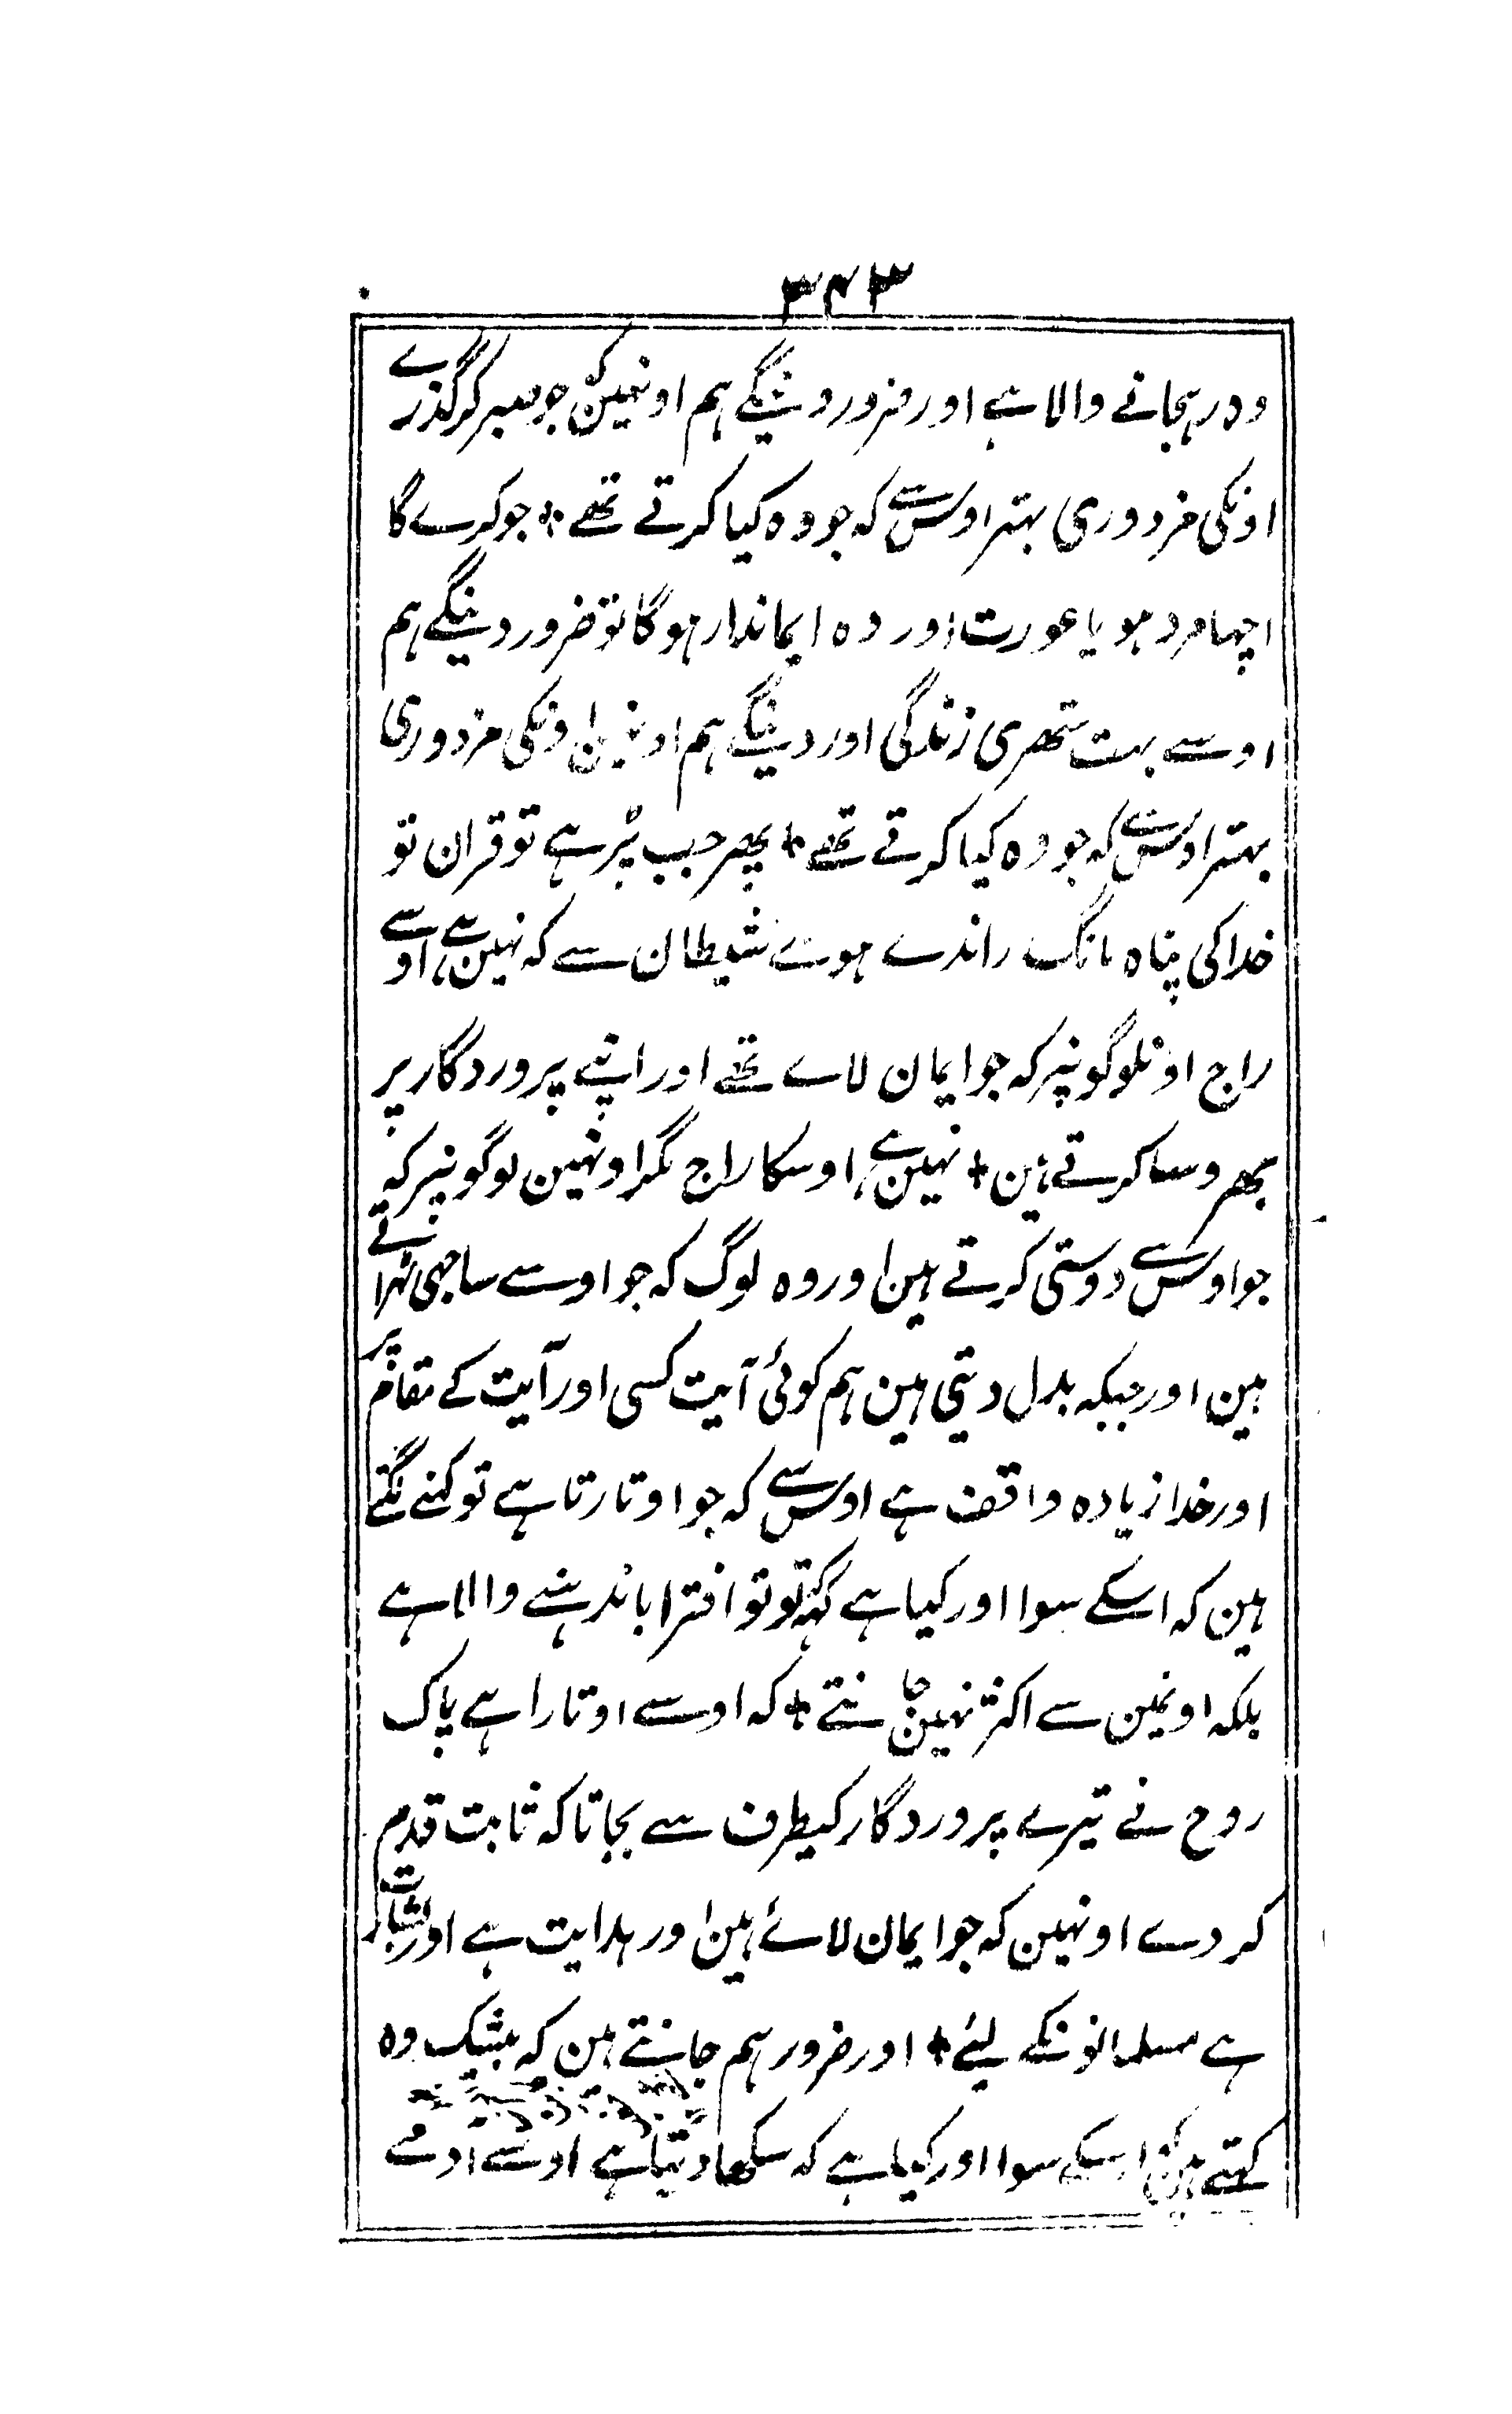 ۳۴۳
وہ رہجانے والا ہے اور ضرور دینگے ہم اونہین کہ جو صبر کر گذرے
اونکی مزدوری بہتر اوس سے کہ جو وہ کیا کرتے تھے + جو کرے گا
اچہا مرد ہو یا عورت اور وہ ایماندار ہوگا تو ضرور دینگے ہم
اوسے بہت ستھری زندگی اور دینگے ہم اونہین اونکی مزدوری
بہتر اوس سے کہ جو وہ کیا کرتے تھے + پھر جب پڑہے تو قران تو
خدا کی پناہ مانگ راندے ہوے شیطان سے کہ نہین ہے اوسے
راج اونلوگونپر کہ جو ایمان لاے تھے اور اپنے پروردگار پر
بھروسا کرتے ہین + نہین ہے اوسکا راج مگر اونہین لوگونپر کہ
جو اوس سے دوستی کرتے ہین اور وہ لوگ کہ جو اوسے ساجھی ٹہراتے
ہین اور جبکہ بدل دیتی ہین ہم کوئی آیت کسی اور آیت کے مقام پر
اور خدا زیادہ واقف ہے اوس سے کہ جو اوتارتا ہے تو کہنے لگتے
ہین کہ اسکے سوا اور کیا ہے کہ تو تو افترا باندہنے والا ہے
بلکہ اونمین سے اکثر نہین جانتے + کہ اوسے اوتارا ہے پاک
روح نے تیرے پروردگار کیطرف سے بجا تاکہ ثابت قدم
کر دے اونہین کہ جو ایمان لائے ہین اور ہدایت ہے اور بشارت
ہے مسلمانونکے لیئے + اور ضرور ہم جانتے ہین کہ بیشک وہ
کہتے ہین کہ اسکے سوا اور کیا ہے کہ سکھا دیتا ہے اوسے آدمے